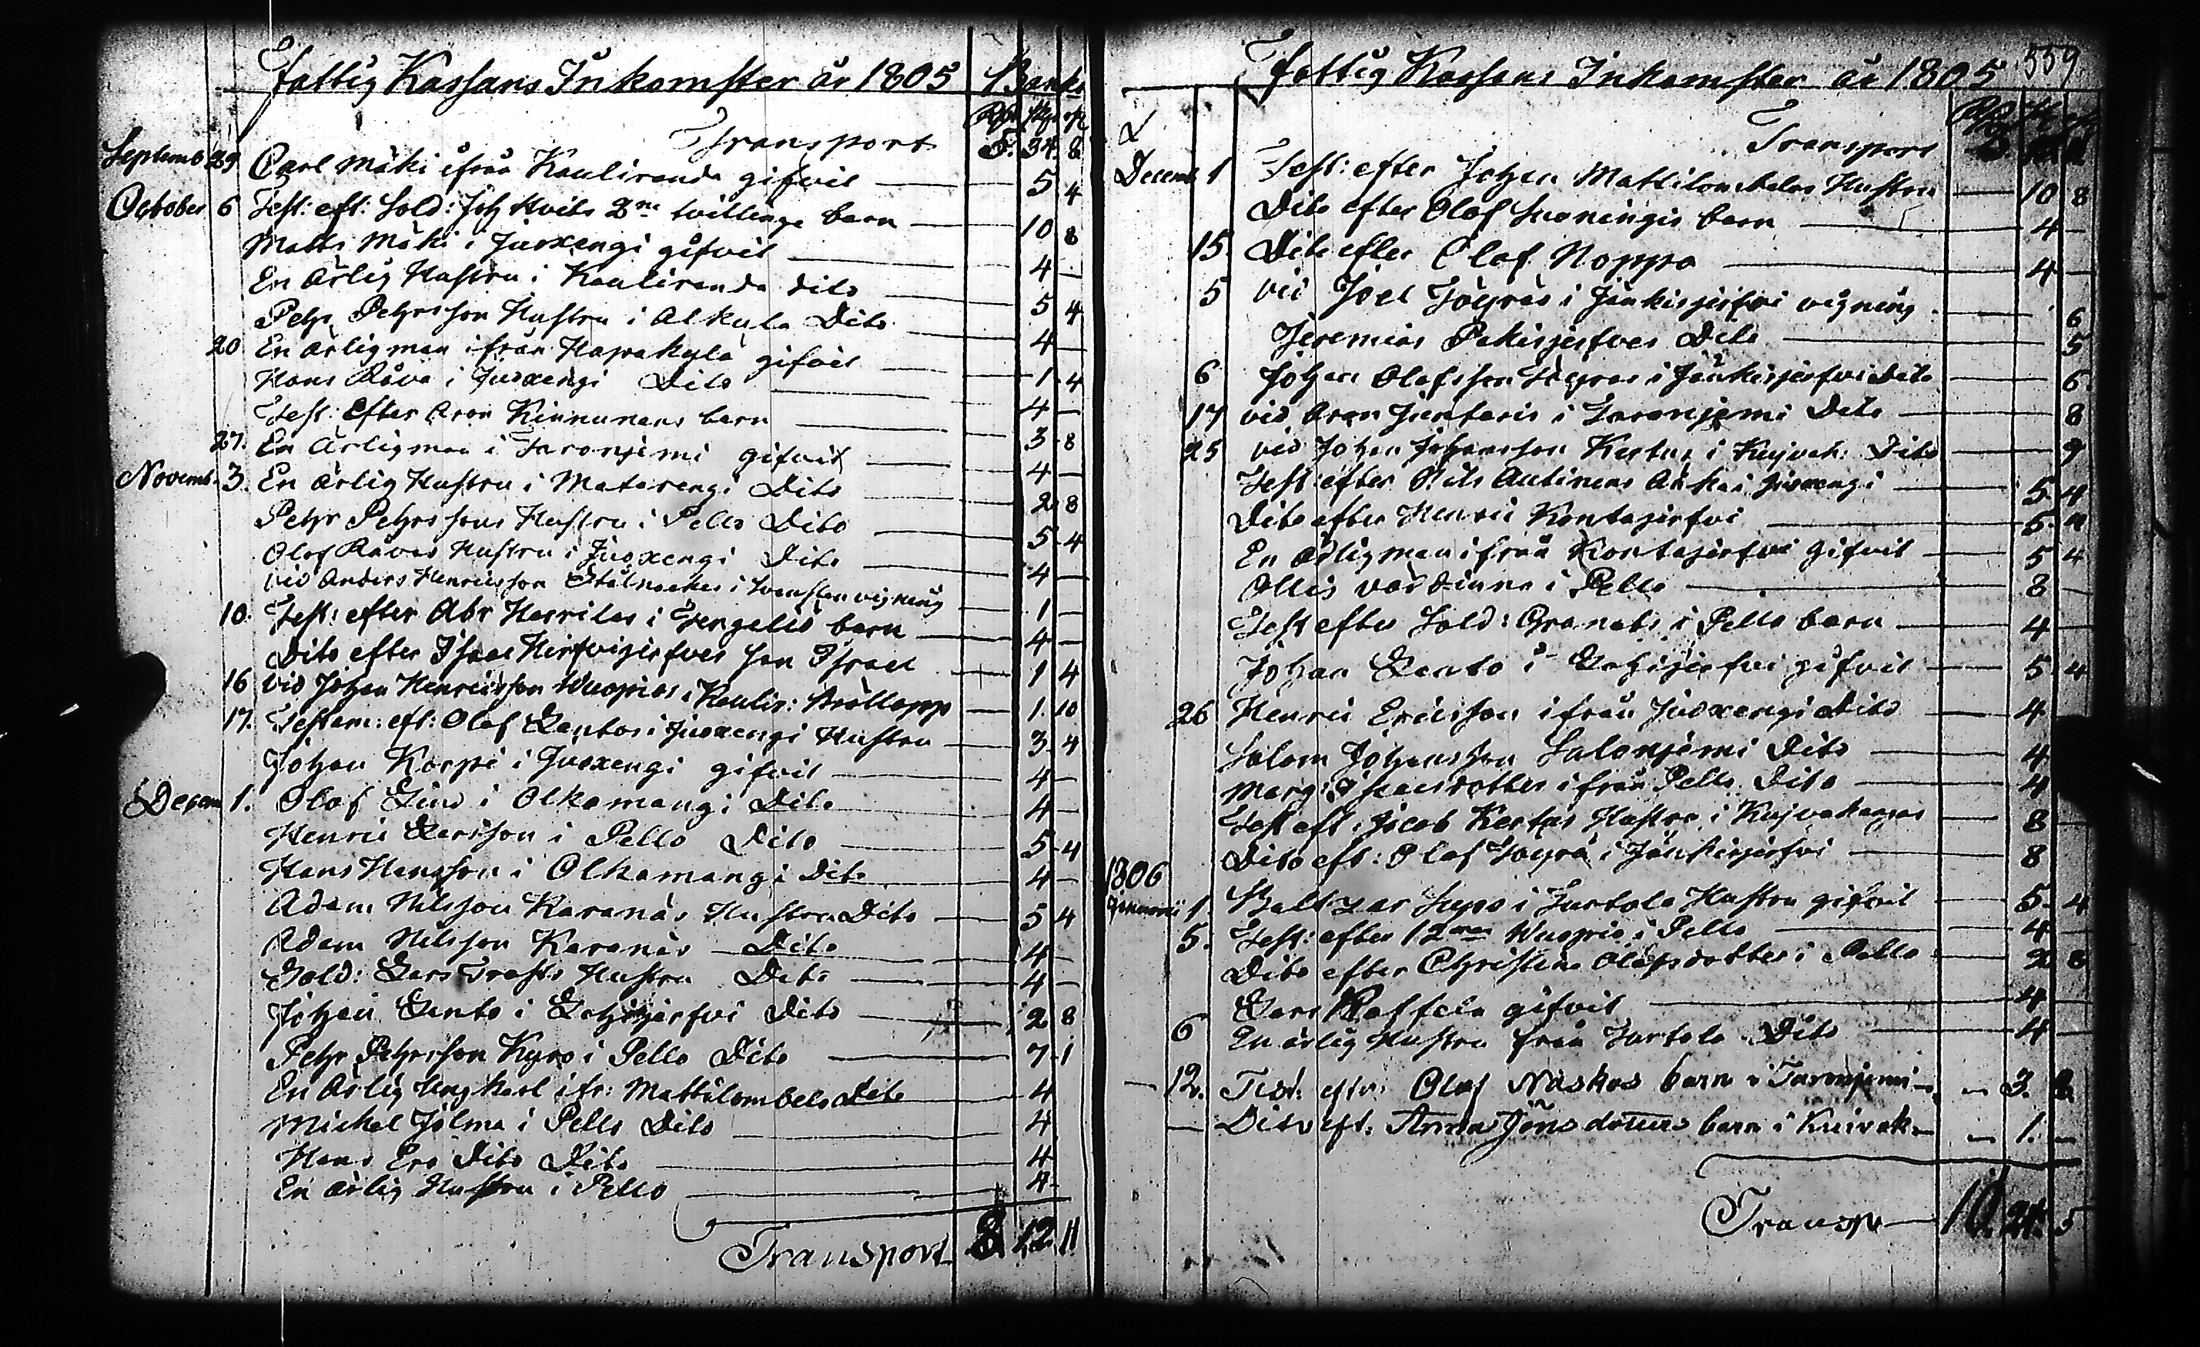 Fattig Kassans Inkomster år 1805 Banko
Rdr sk r
Transport 5. 34. 8
Septemb 29 Carl Mäki ifrån Kauliranda gifvit 5 4
October 6 Test: eft: Sold: Joh Hvits 2ne tvillinge barn 10 8
Matts Mäki i Juoxengi gifvit 4 —
En Ärlig Hustru i Kauliranda dito 5 4
Pehr Pehrsson Hustru i Alkula Dito 4 —
20 En ärlig man ifrån Haparakylä gifvit 1 4
Hans Räva i Juoxengi Dito 4 —
Test: Efter Aron Kinnunens barn 3 8
27. En Ärlig man i Turonjemi gifvit 4 —
Novemb. 3. En Ärlig Hustru i Matarengi Dito 2 8
Pehr Pehrssons Hustru i Pello Dito 5 4
Olof Rävas Hustru i Juoxengi Dito 4 —
vid Anders Henricsson Stålnackes i Svanstein vigning 1 —
10. Test: efter Abr Herrilas i Tengeliö barn 4 —
Dito efter Israel Hirfvijerfves son Israel 1 4
16 vid Johan Henricsson Wuopios i Kaulir: Bröllopp 1. 10
17. Testam: eft: Olof Lantos i Juoxengi Hustru 3 4
Johan Korpi i Juoxengi gifvit 4 —
Decem 1. Olof Lind i Olkamangi Dito 4 —
Henric Larsson i Pello Dito 5 4
Hans Hansson i Olkamangi Dito 4 —
Adam Nilsson Karanäs Hustru Dito 5 4
Adam Nilsson Karanäs Dito 4 —
Sold: Lars Trasts Hustru Dito 4 —
Johan Lanto i Lohijerfvi Dito 2 8
Pehr Pehrsson Kyrö i Pello Dito 7 1
En Ärlig Ung Karl ifr: Mattilambelo Dito 4
Michel Jolma i Pello Dito 4
Hans Ers Dito Dito 4
En ärlig Hustru i Pello 4
Transport 8. 12. 11
559
Fattig Kassans Inkomster år 1805
Transport
Decemb 1 Test: efter Johan Mattilambelos Hustru 10 8
Dito efter Olof Juoningis barn 4 —
15. Dito efter Olof Noppa 4 —
5 vid Joel Töyräs i Jänkisjerfvi vigning 6
Jeremias Pakisjerfves Dito 5
6 Johan Olofsson Töyräs i Jänkisjerfvi Dito 6
17 vid Aron Juntaris i Turonjemi Dito 8
25 vid Johan Johansson Kertus i Kuivak: Dito 9
Test efter Nils Autinens Änka i Juoxengi 5 4
Dito efter Henric Kontajerfvi 5. 4
En Ärlig man ifrån Kontajerfvi gifvit 5 4
Ollis värdinna i Pello 8 —
Test efter Sold: Granats i Pello barn 4 —
Johan Lanto i Lohijerfvi gifvit 5 4
26 Henric Ericsson ifrån Juoxengi Dito 4
Salom Johansson Salonjemi Dito 4
Marg: Isacsdotter ifrån Pello Dito 4
Test eft: Jacob Kertus Hustru i Kuivakangas 8 —
Dito eft: Olof Töyrä i Jänkisjerfvi 8
1806
Januarii 1. Baltzar Sepo i Turtola Hustru gifvit 5. 4
5. Test: efter 12 man Wuopio i Pello 4 —
Dito efter Christina Olofsdotter i Pello 2 8
Lars Raffela gifvit 4
6 En ärlig Hustru från Turtola Dito 4 —
12. Test: eftr: Olof Näskas barn i Turonjemi 3. 2
Dito eft. Anna Jöns dotters barn i Kuivak— 1. —
Transp— 10. 24. 5